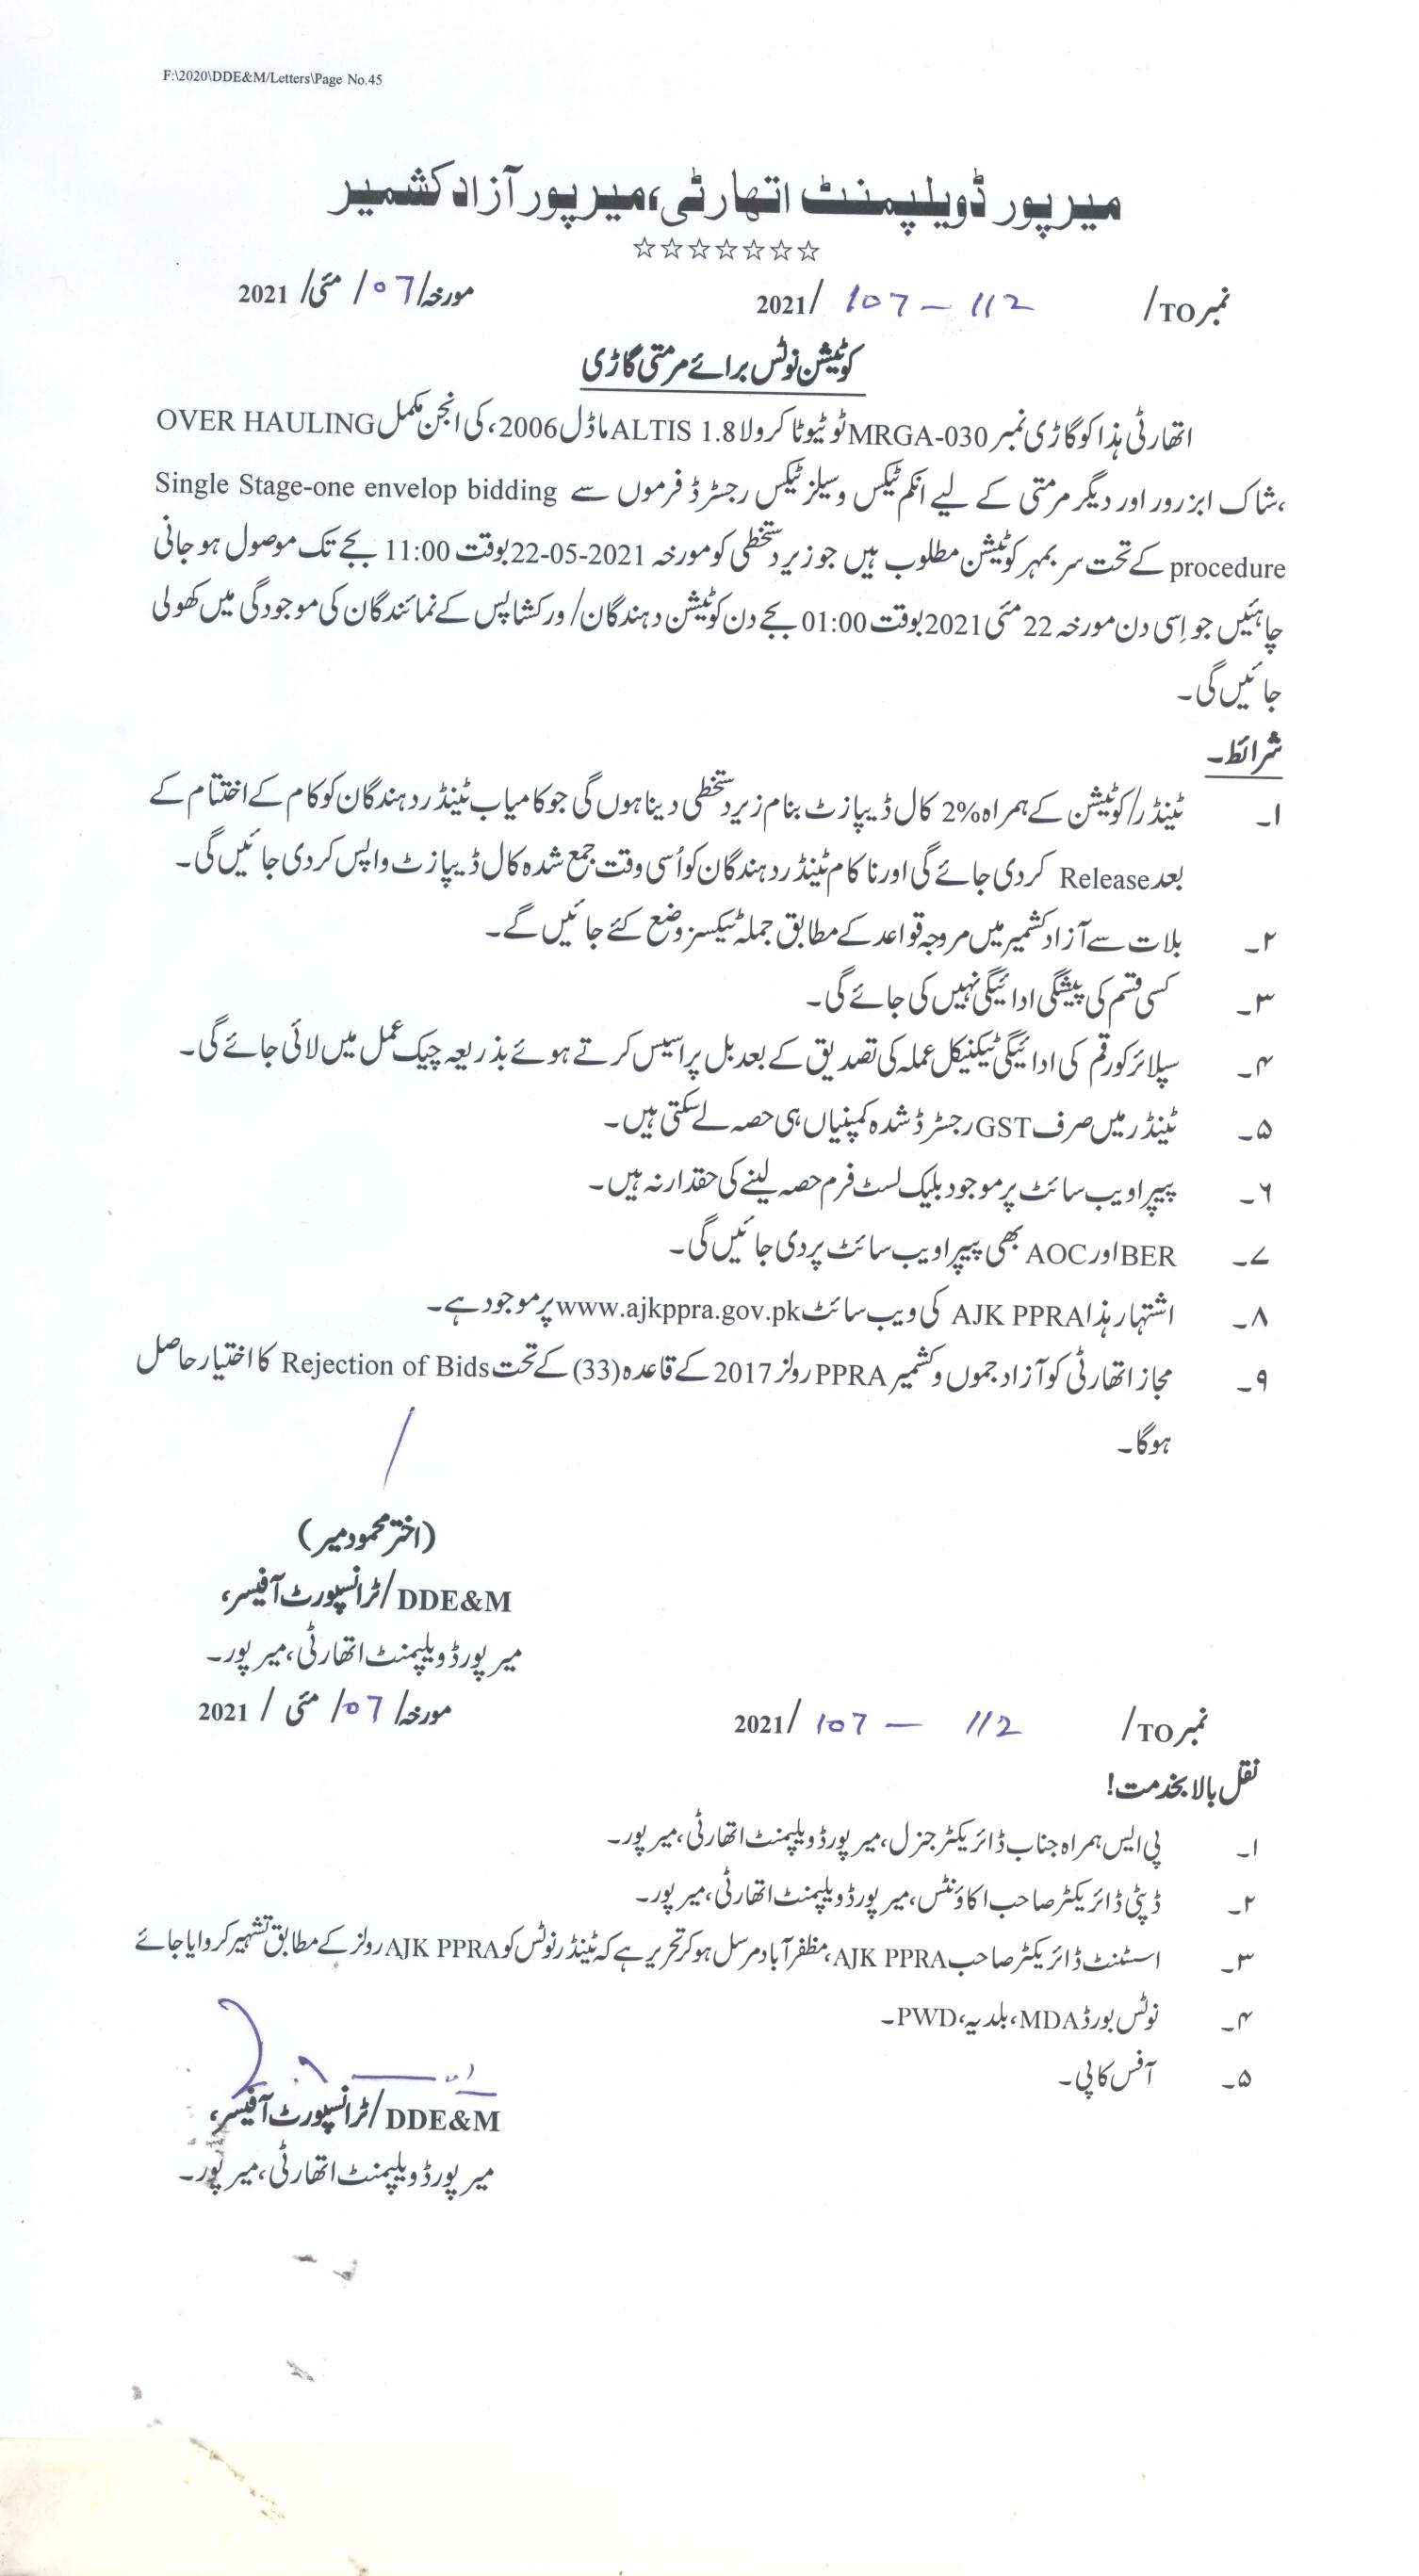 F:\2020\DDE&M/Letters\Page No.45
میرپور ڈویلپمنٹ اتھارٹی، میرپور آزاد کشمیر
☆☆☆☆☆☆☆
نمبر TO/ 107 – 112 /2021 مورخہ/ 07 / مئی/ 2021
کوٹیشن نوٹس برائے مرمتی گاڑی
اتھارٹی ہذا کو گاڑی نمبر MRGA-030 ٹویوٹا کرولا ALTIS 1.8 ماڈل 2006، کی انجن مکمل OVER HAULING
،شاک ابزرور اور دیگر مرمتی کے لیے انکم ٹیکس وسیلز ٹیکس رجسٹرڈ فرموں سے Single Stage-one envelop bidding
procedure کے تحت سر بمہر کوٹیشن مطلوب ہیں جو زیر دستخطی کو مورخہ 22-05-2021 بوقت 11:00 بجے تک موصول ہو جانی
چاہئیں جو اِسی دن مورخہ 22 مئی 2021 بوقت 01:00 بجے دن کوٹیشن دہندگان/ ورکشاپس کے نمائندگان کی موجودگی میں کھولی
جائیں گی۔
شرائط۔
۱۔ ٹینڈر/کوٹیشن کے ہمراہ 2% کال ڈیپازٹ بنام زیر دستخطی دینا ہوں گی جو کامیاب ٹینڈر دہندگان کو کام کے اختتام کے
بعد Release کر دی جائے گی اور ناکام ٹینڈر دہندگان کو اُسی وقت جمع شدہ کال ڈیپازٹ واپس کر دی جائیں گی۔
۲۔ بلات سے آزاد کشمیر میں مروجہ قواعد کے مطابق جملہ ٹیکسز وضع کئے جائیں گے۔
۳۔ کسی قسم کی پیشگی ادائیگی نہیں کی جائے گی۔
۴۔ سپلائر کو رقم کی ادائیگی ٹیکنیکل عملہ کی تصدیق کے بعد بل پراسیس کرتے ہوئے بذریعہ چیک عمل میں لائی جائے گی۔
۵۔ ٹینڈر میں صرف GST رجسٹرڈ شدہ کمپنیاں ہی حصہ لے سکتی ہیں۔
۶۔ پیپرا ویب سائٹ پر موجود بلیک لسٹ فرم حصہ لینے کی حقدار نہ ہیں۔
۷۔ BER اور AOC بھی پیپرا ویب سائٹ پر دی جائیں گی۔
۸۔ اشتہار ہذا AJK PPRA کی ویب سائٹ www.ajkppra.gov.pk پر موجود ہے۔
۹۔ مجاز اتھارٹی کو آزاد جموں و کشمیر PPRA رولز 2017 کے قاعدہ (33) کے تحت Rejection of Bids کا اختیار حاصل
ہوگا۔
(اختر محمود میر)
DDE&M/ٹرانسپورٹ آفیسر،
میرپور ڈویلپمنٹ اتھارٹی، میرپور۔
نمبر TO/ 107 – 112 /2021 مورخہ/ 07/ مئی / 2021
نقل بالا بخدمت!
۱۔ پی ایس ہمراہ جناب ڈائریکٹر جنرل، میرپور ڈویلپمنٹ اتھارٹی، میرپور۔
۲۔ ڈپٹی ڈائریکٹر صاحب اکاؤنٹس، میرپور ڈویلپمنٹ اتھارٹی، میرپور۔
۳۔ اسٹنٹ ڈائریکٹر صاحب AJK PPRA، مظفرآباد مرسل ہو کر تحریر ہے کہ ٹینڈر نوٹس کو AJK PPRA رولز کے مطابق تشہیر کروایا جائے
۴۔ نوٹس بورڈ MDA، بلدیہ، PWD۔
۵۔ آفس کاپی۔
DDE&M/ٹرانسپورٹ آفیسر،
میرپور ڈویلپمنٹ اتھارٹی، میرپور۔